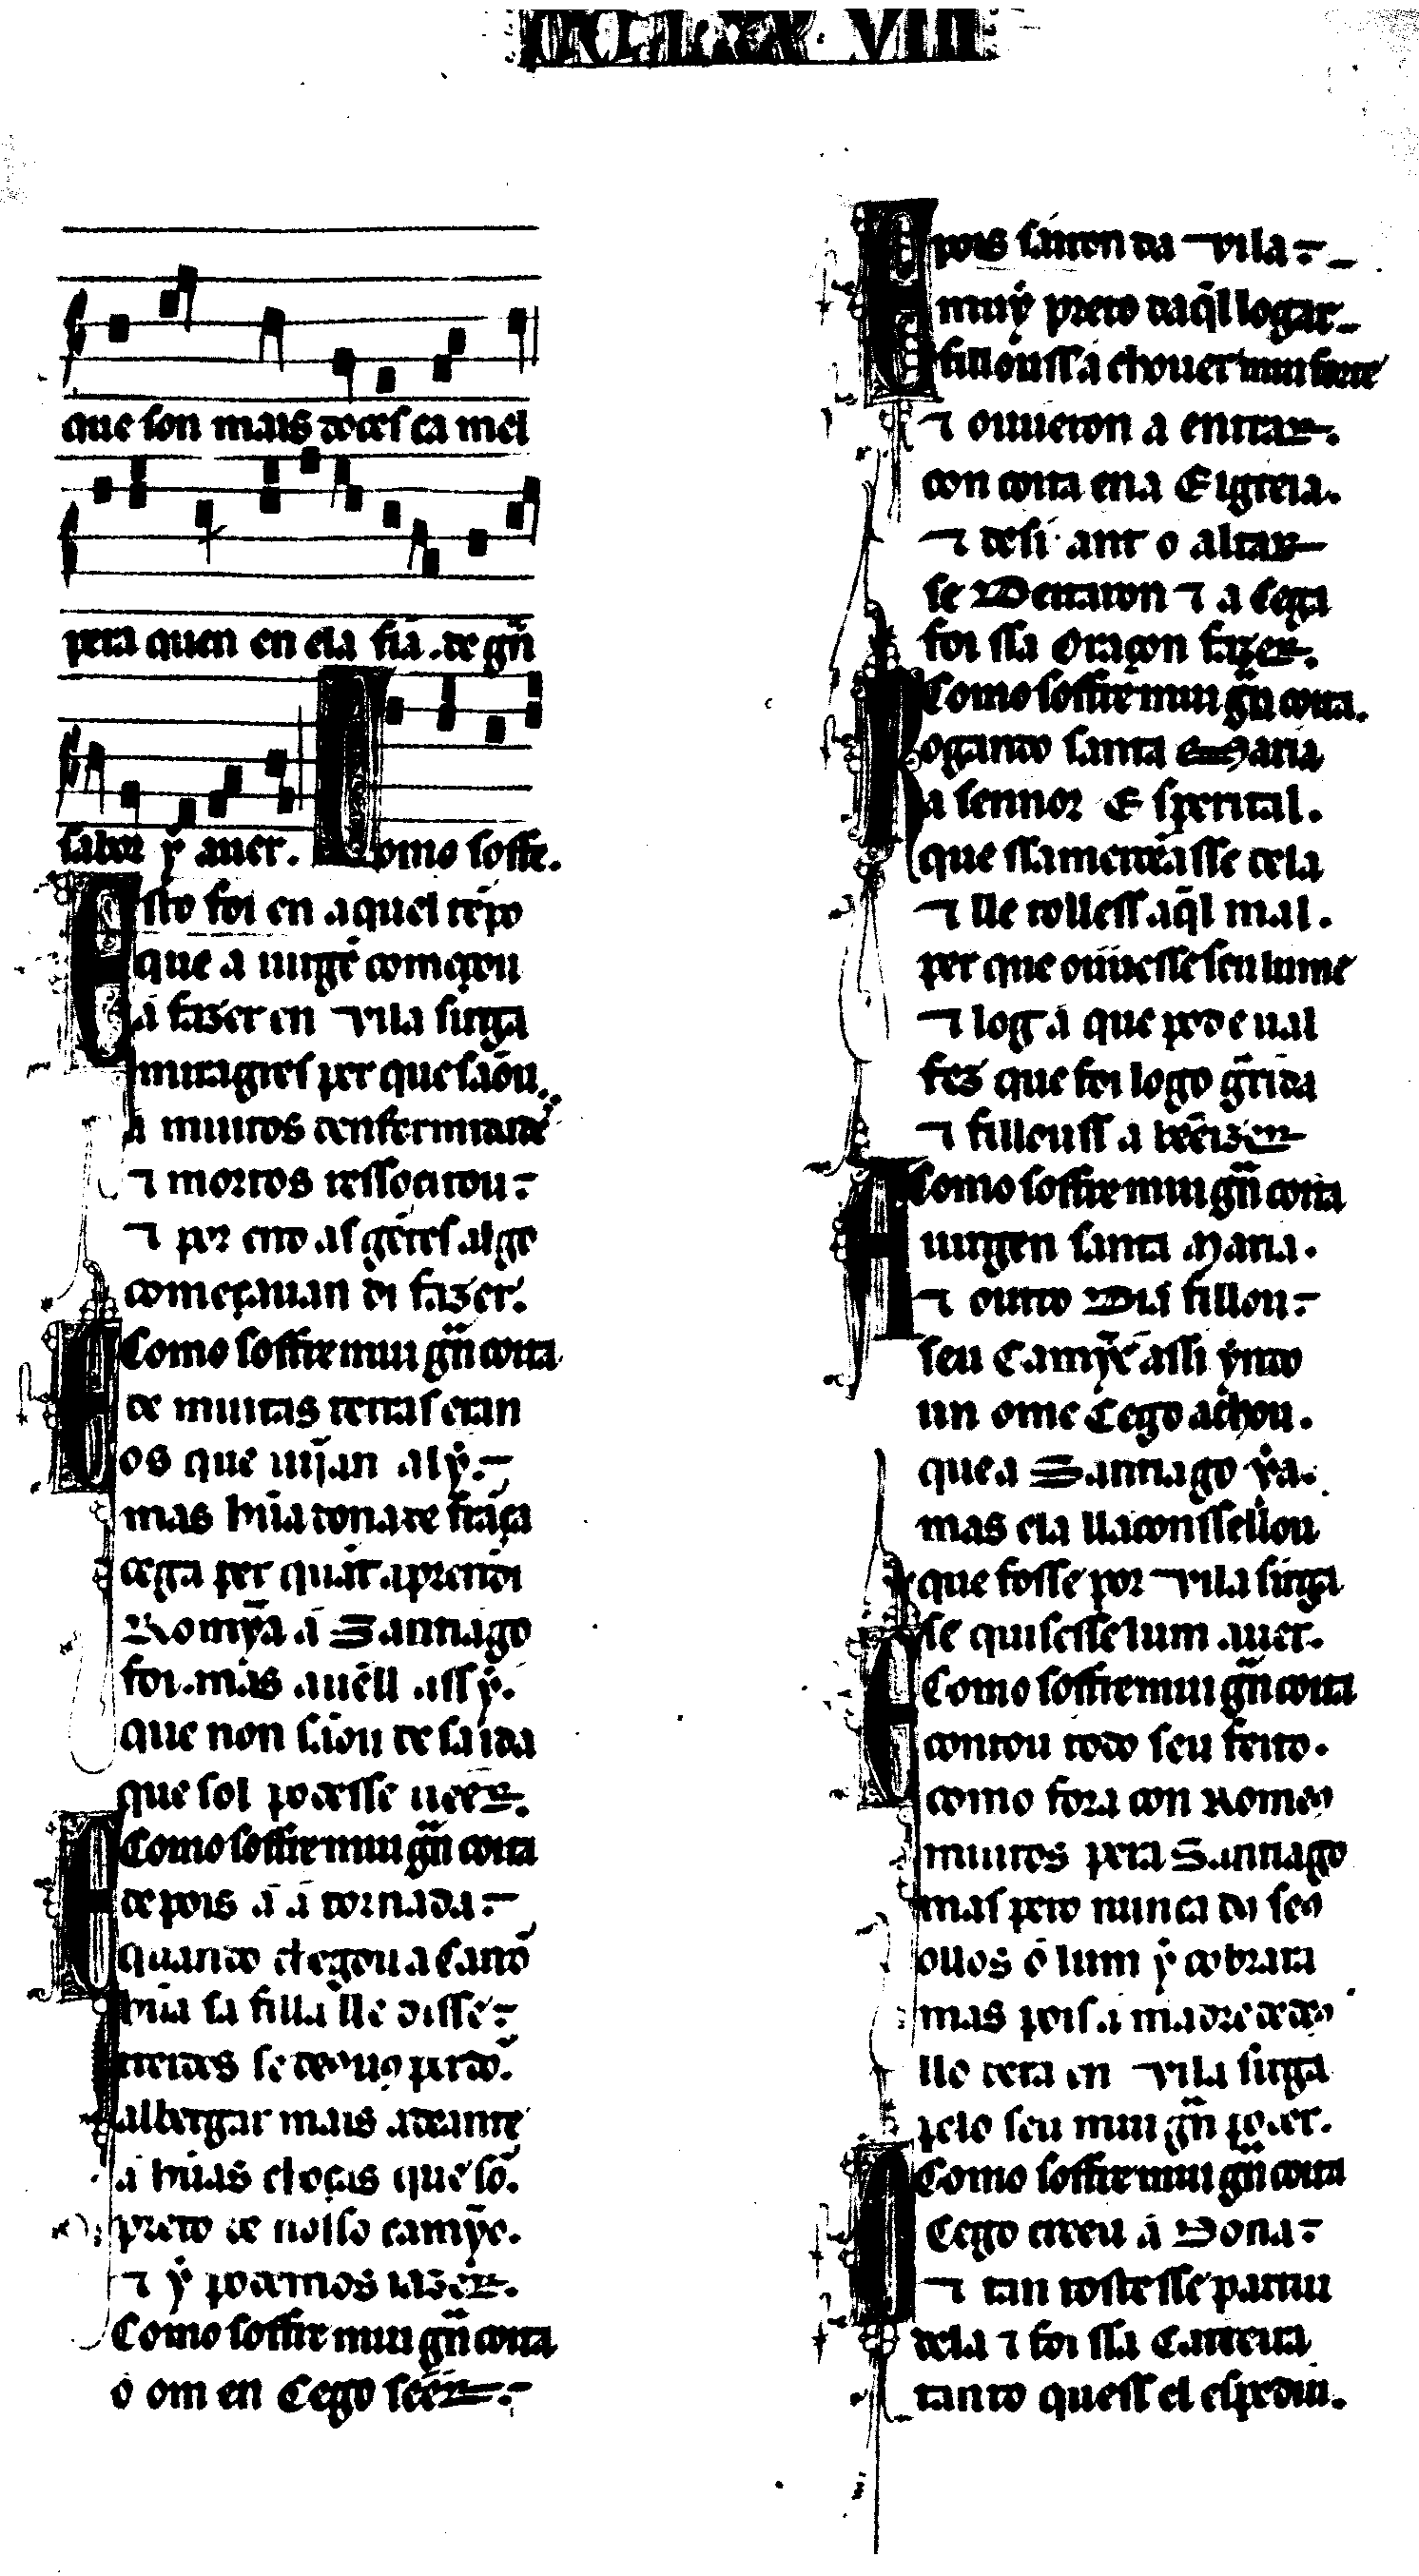 CCLXX VIII
que son mais doces ca mel
pera quen en ela fia . de gñ
sabor ẏ auer . Como soffe .
Esto foi en aquel tẽpo
que a uirgẽ começou
a fazer en Vila sirga
miragres per que sãou
a muitos denfermidade
⁊ mortos ressocitou :
⁊ por endo as gẽtes algo
começauan di fazer .
Como soffre mui gñ coita
E de muitas terras eran
os que uĩjan alẏ .
mas hũa dona de frãça
cega per quãt aprendi
Romỹa a Santiago
foi . mas auẽll assẏ .
que non sãou de sa ida
que sol podesse ueer .
Como soffre mui gñ coita
E depois á á tornada :
quando chegou a Carrõ
hũa sa filla lle disse :
treides se ds̃ uo9 perdõ .
albergar mais adeante
a hũas choças que sõ .
preto de nosso camỹo .
⁊ ẏ podemos iazer .
Como soffre mui gñ coita
o om en Cego seer :
E pois sairon da vila :
mui preto daq̃l logar
filloussa chouer mui forte
⁊ ouueron a entrar .
con coita ena Eigreia .
⁊ desi ant o altar
se Deitaron ⁊ a Cega
foi ssa Oraçon fazer .
Como soffre mui gñ coita .
Rogando santa Maria
a sennor Esperital .
que ssamerceasse dela
⁊ lle tolless aq̃l mal .
per que ouuesse seu lume
⁊ log a que pod e ual
fez que foi logo g̃rida
⁊ filleuss a bẽeizer
Como soffre mui gñ coita
A uirgen santa Maria .
⁊ outro Dia fillou :
seu Camỹo assi ẏndo
un ome Cego achou .
que a Santiago ẏa .
mas ela llaconssellou
que fosse por Vila sirga
se quisesse lum auer .
Como soffre mui gñ coita
E contou todo seu feito .
como fora con Rome9
muitos pera Santiago
mas pero nunca do9 se9
ollos o lum ẏ cobrara
mas pois a madre de de9
llo dera en Vila sirga
pelo seu mui gñ poder .
Como soffre mui gñ coita
O Cego creeu á Dona :
⁊ tan tostesse partiu
dela ⁊ foi ssa Carreira
tanto quess el espediu .